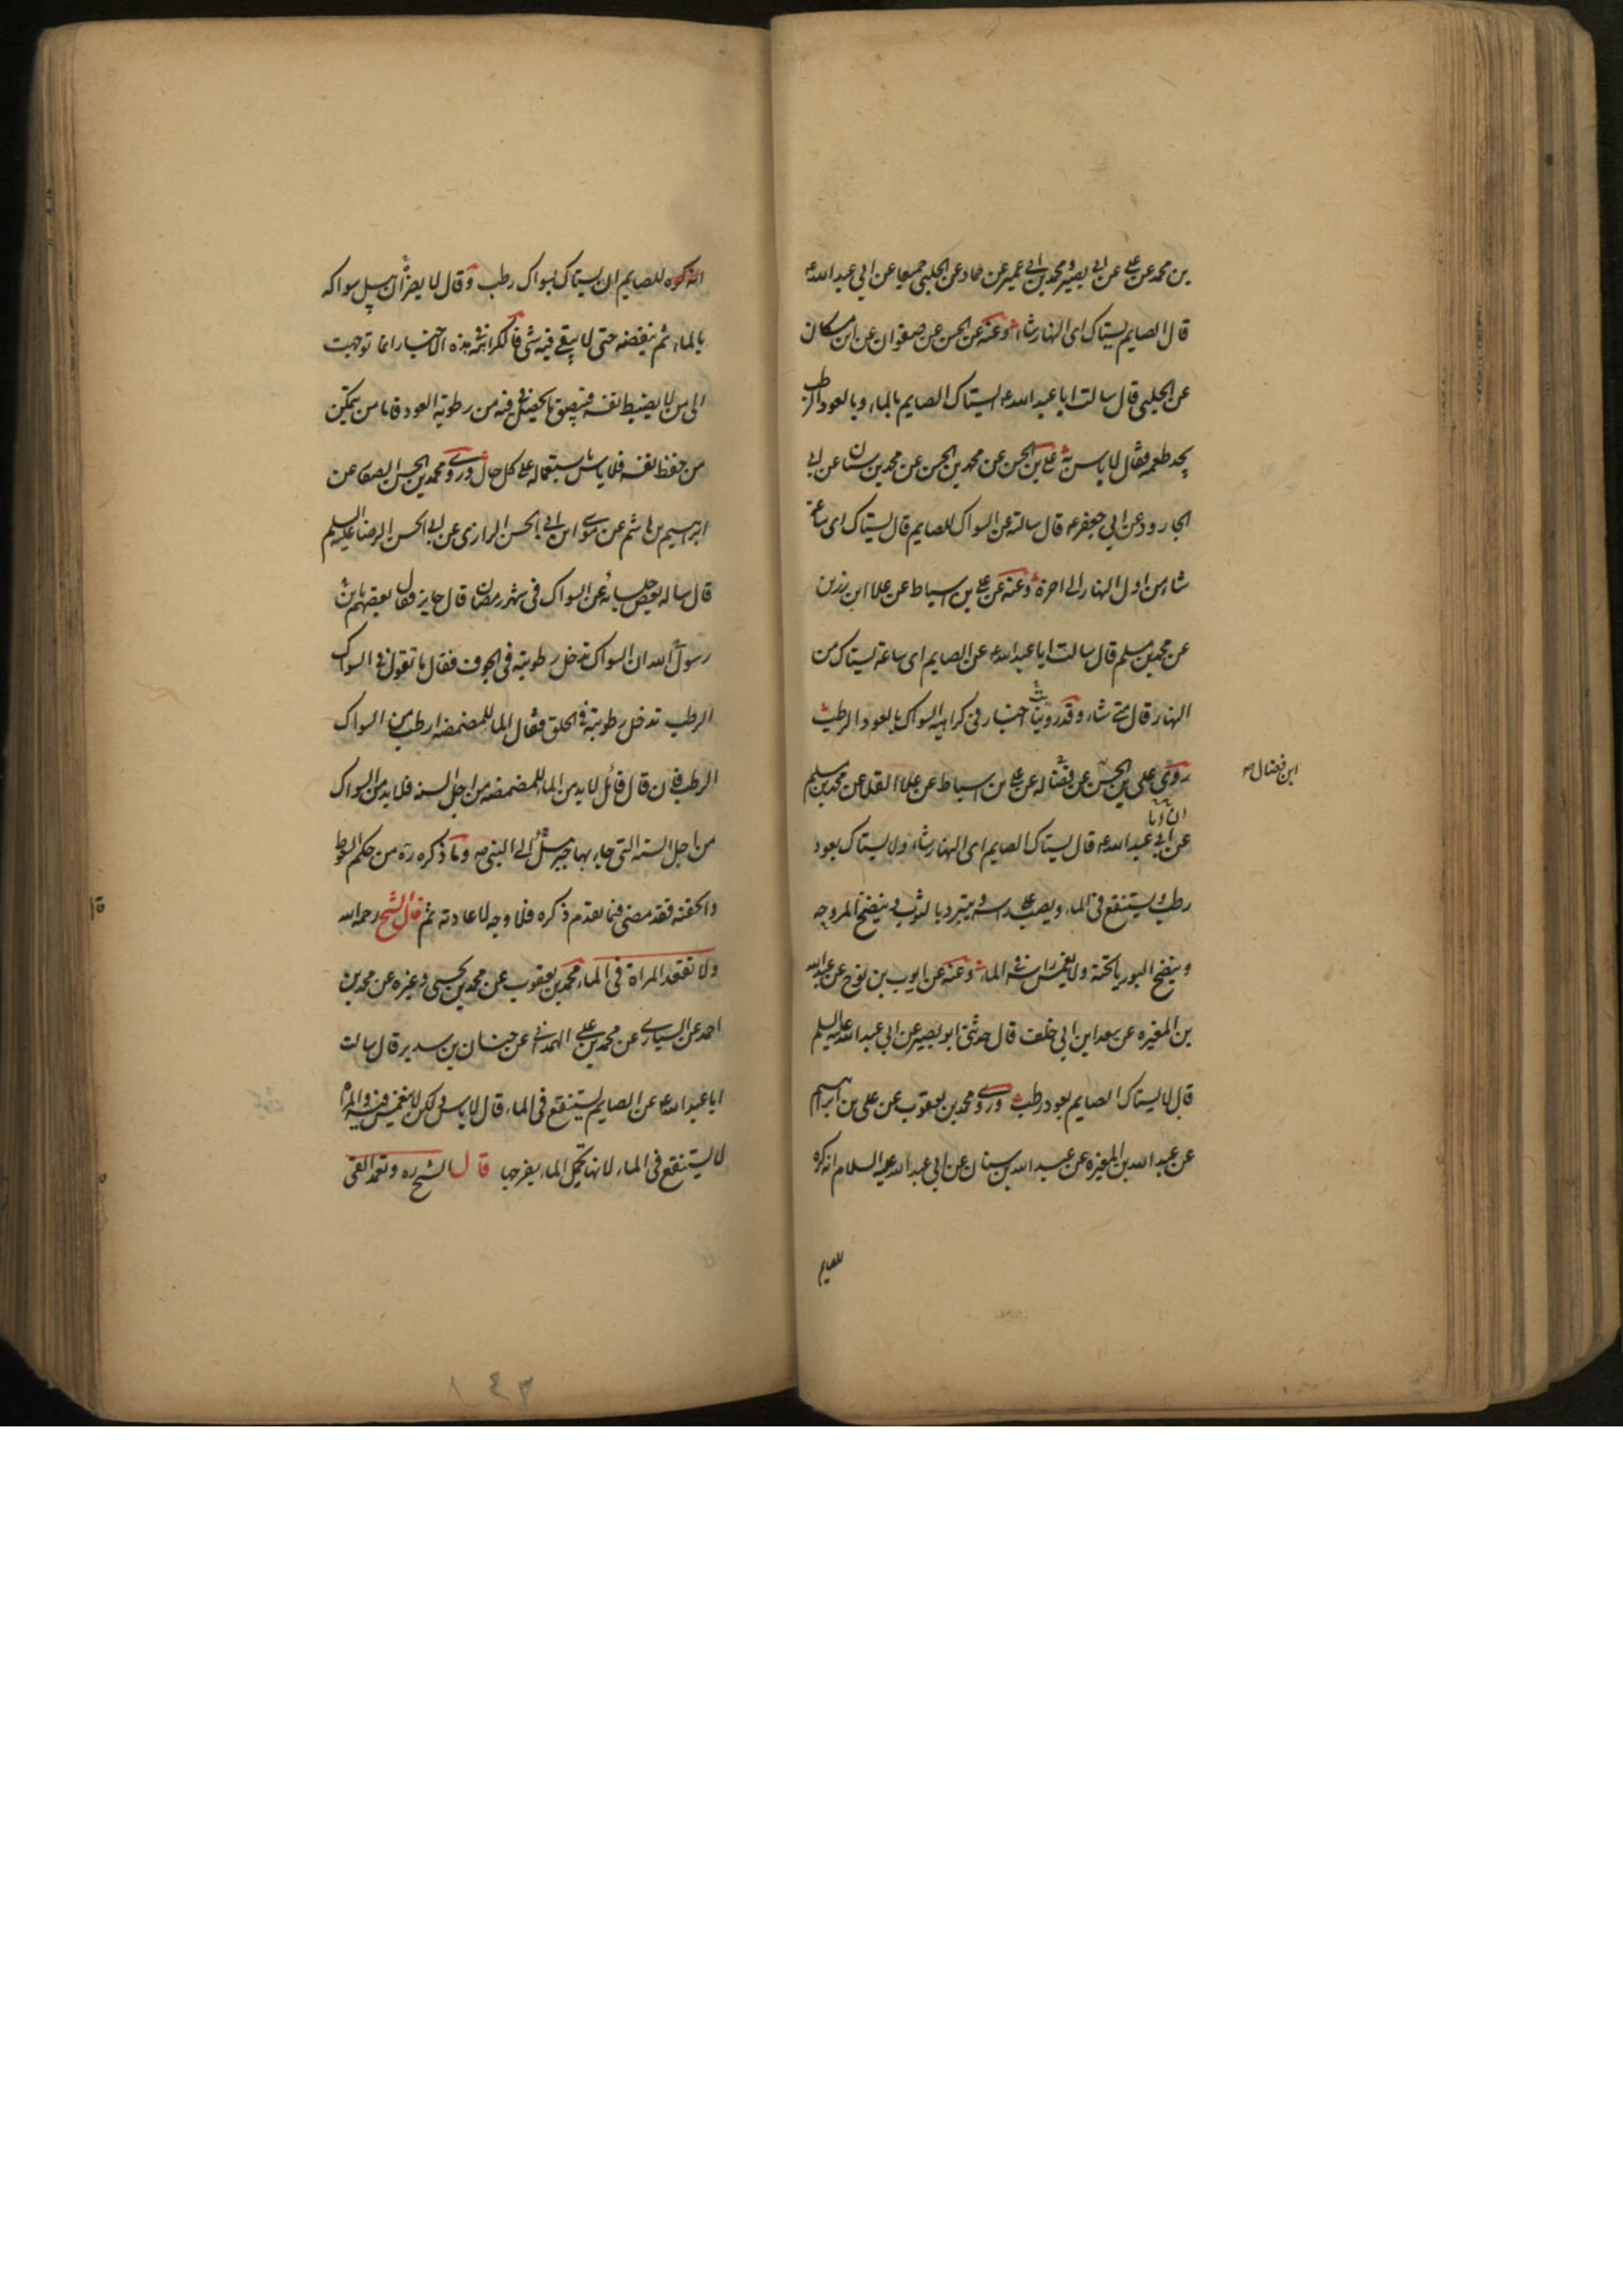 بن محمد عن علي عن ابي بصير و محمد بن ابي عمير عن حماد عن الحلبي جميعا عن ابي عبد الله ع
قال الصايم يستاك اى النهار شاء وعنه عن الحسن عن صفوان عن ابن مسكان
عن الحلبي قال سالت ابا عبد الله ع ايستاك الصايم بالماء وبالعود الرطب
يجد طعمه فقال لا باس به علي بن الحسن عن محمد بن الحسن عن محمد بن سنان عن ابي
الجارود عن ابي جعفر ع قال سالته عن السواك للصايم قال يستاك اى ساعة
شاء من اول النهار الى اخره وعنه عن علي بن اسباط عن علا ابن رزين
عن محمد بن مسلم قال سالت ابا عبد الله ع عن الصايم اى ساعة يستاك من
النهار قال متى شاء وقد رويت اخبار في كراهية السواك بالعود الرطب
روى علي بن الحسن عن فضاله عن علي بن اسباط عن علا القلا عن محمد بن مسلم
ابن فضال ص
عن ابي عبد الله ع قال يستاك الصايم اى النهار شاء ولا يستاك بعود
رطب ويستنقع في الماء ويصب على راسه ويتبرد بالثوب وينضح المروحه
وينضح البوريا تحته ولا يغمس راسه في الماء وعنه عن ايوب بن نوح عن عبد الله
بن المغيره عن سعد ابن ابي خلف قال حدثني ابو بصير عن ابي عبد الله عليه السلم
قال لا يستاك الصايم بعود رطب وروى محمد بن يعقوب عن علي بن ابراهيم
عن عبد الله بن المغيره عن عبد الله بن سنان عن ابي عبد الله عليه السلام انه كره
للصايم
انه كره للصايم ان يستاك بسواك رطب وقال لا يضر ان يبل سواكه
بالماء ثم ينفضه حتى لا يبقى فيه شي فالكراهة في هذه الاخبار انما توجهت
الى من لا يضبط نفسه فيبصق ما يحصل في فيه من رطوبة العود فاما من يتمكن
من حفظ نفسه فلا باس باستعماله على كل حال وروى محمد بن الحسن الصفار عن
ابراهيم بن هاشم عن موسى ابن ابي الحسن الرازى عن ابي الحسن الرضا عليه السلم
قال ساله بعض جلسائه عن السواك في شهر رمضان قال جايز فقال بعضهم يا بن
رسول الله ان السواك تدخل رطوبته في الجوف فقال ما تقول في السواك
الرطب تدخل رطوبته في الحلق فقال الماء للمضمضه ارطب من السواك
الرطب فان قال قائل لا بد من الماء للمضمضه من اجل السنه فلا بد من السواك
من اجل السنه التي جاء بها جبرئيل الى النبي ص وما ذكره ره من حكم السعوط
والحقنه فقد مضى فيما تقدم ذكره فلا وجه لاعادته ثم قال الشيخ رحمه الله
ولا تقعد المراة في الماء محمد بن يعقوب عن محمد بن يحيى وغيره عن محمد بن
احمد عن السيارى عن محمد بن علي الهمداني عن حنان بن سدير قال سالت
ابا عبد الله ع عن الصايم يستنقع في الماء قال لا باس ولكن لا ينغمس فيه والمراة
لا تستنقع في الماء لانها تحمل الماء بفرجها قال الشيخ ره وتعمد القى